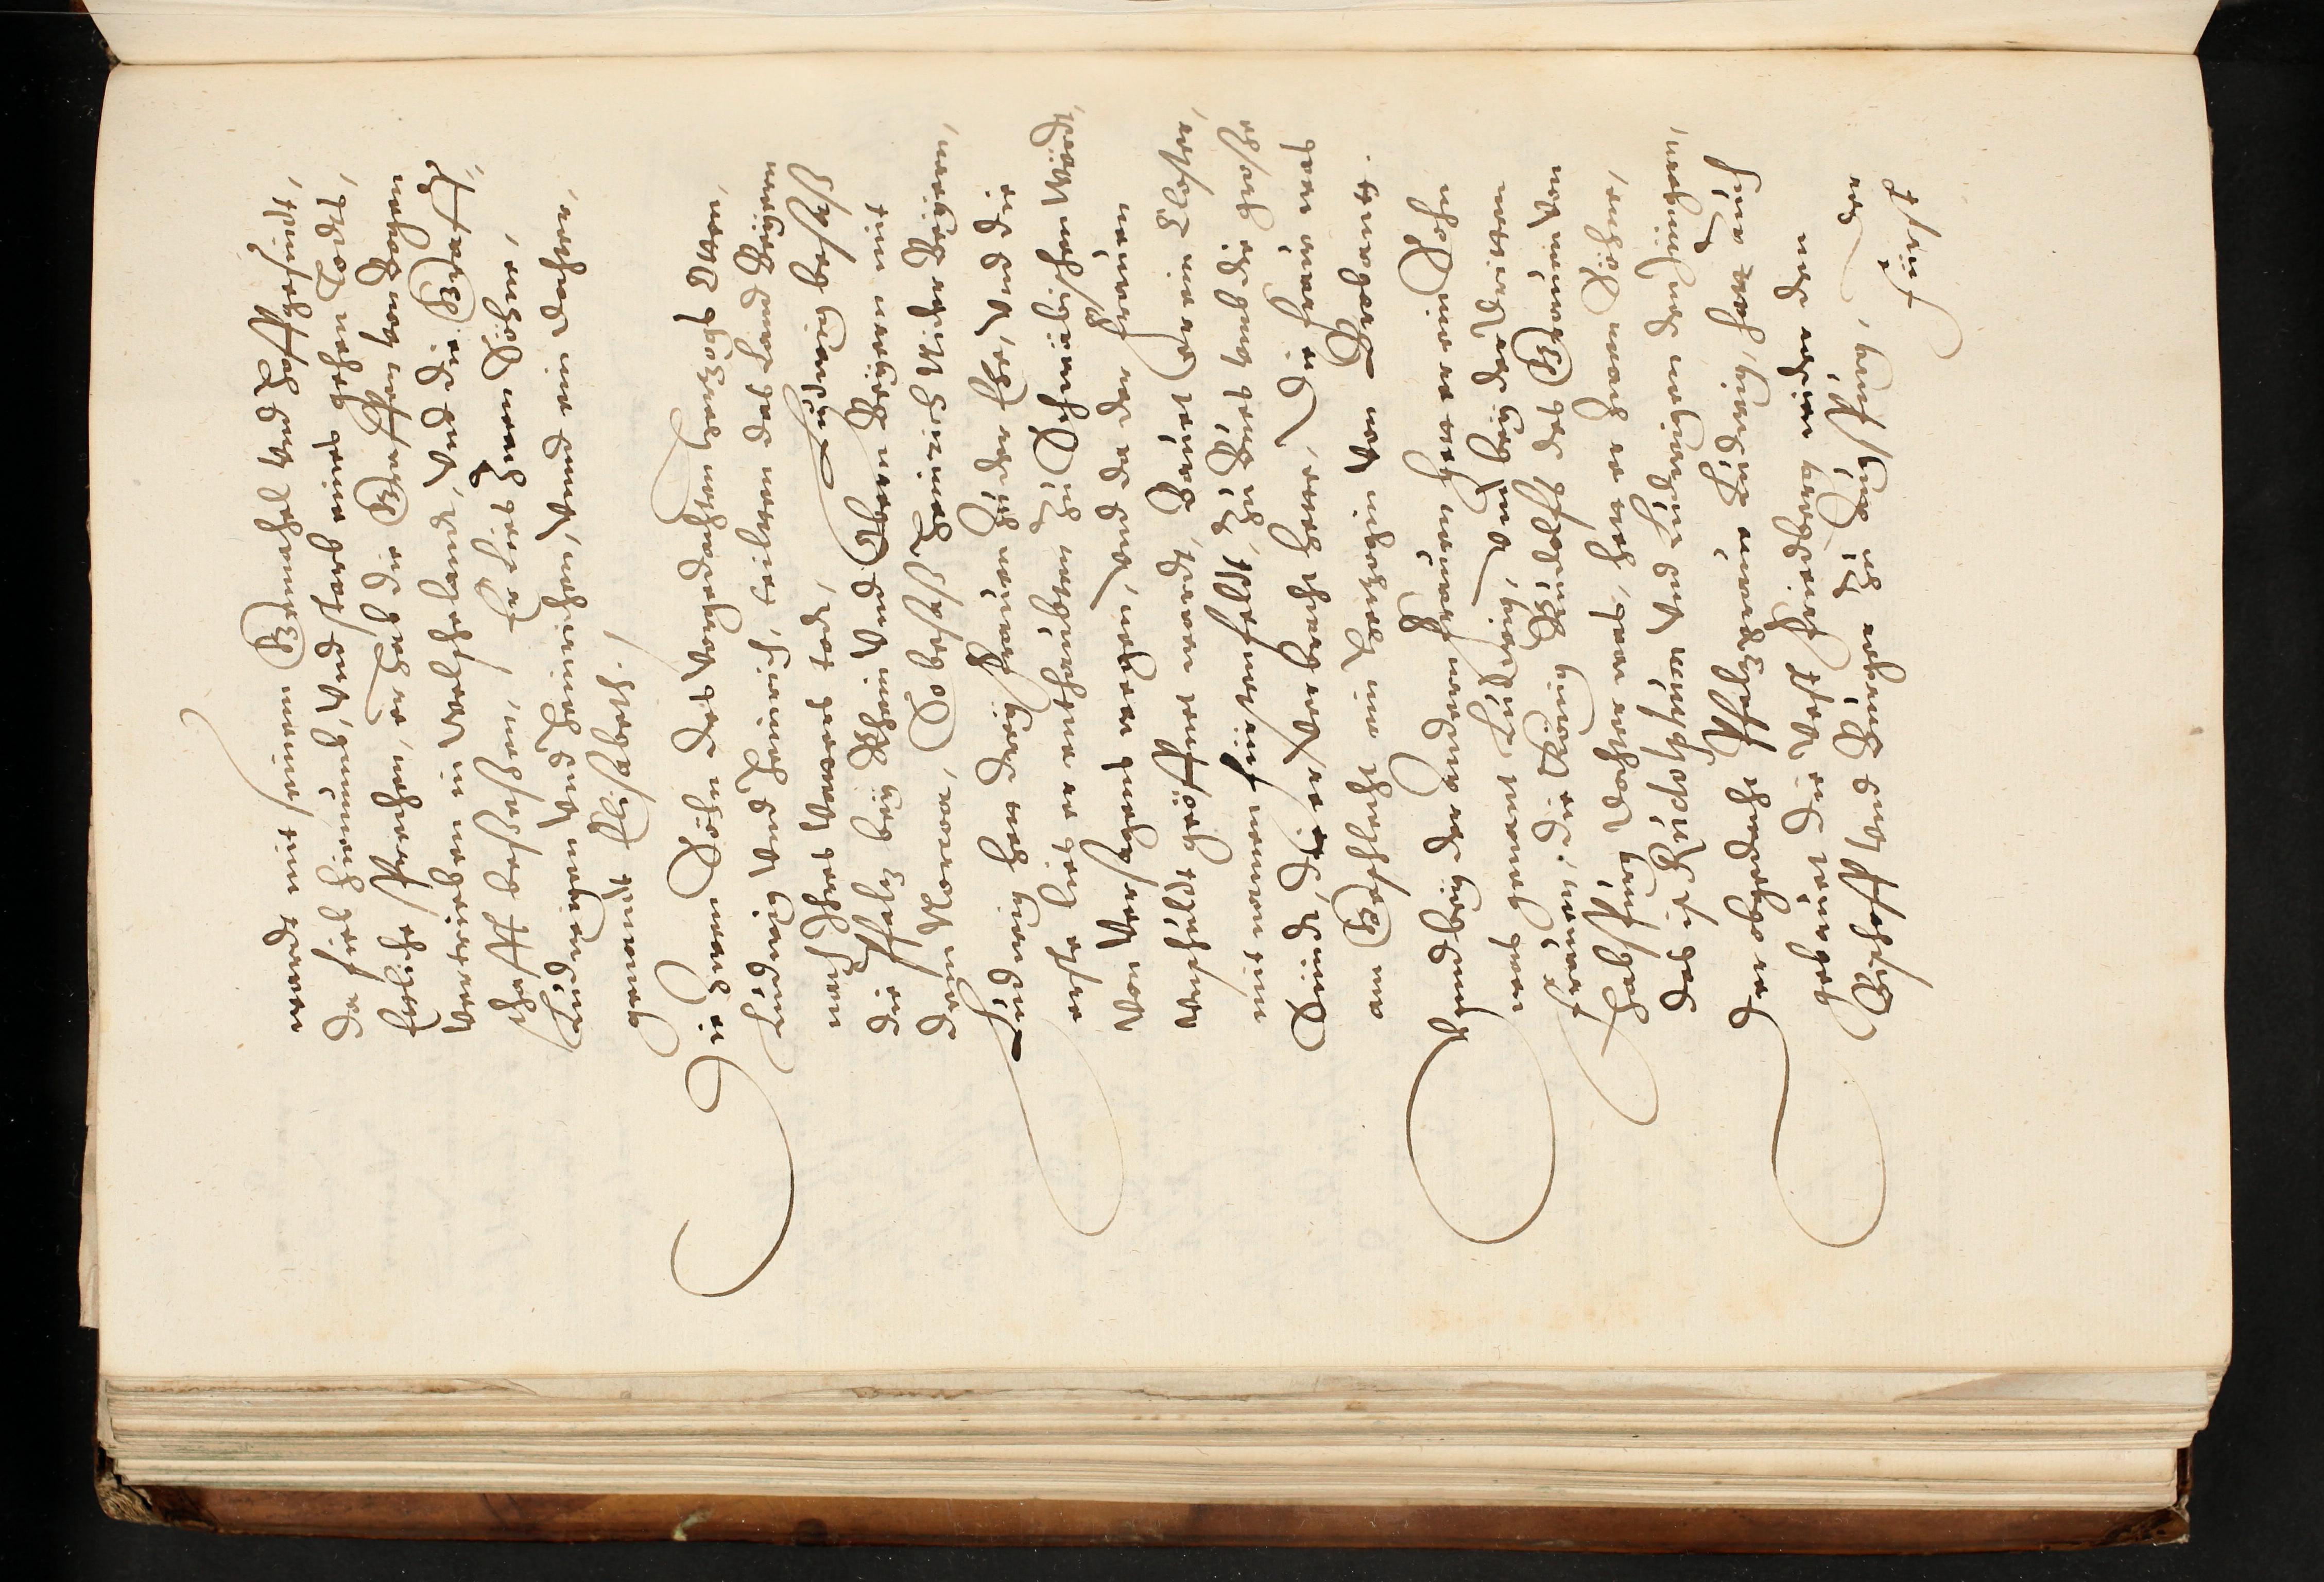 wardt mit seinem Gemahel vnd Hoffgesindt,
da fiel hinumb, vnd starb eines gehen Todts,
Etliche sprechen, er hab die Graffen von Bogen
vertrieben in Welschelandt, vnd die Graff-
schafft besessen, Er lies Zween Söhne,
Ludwigen vnd Heinrichen, vnnd ein Tochter
genandt Elisabeth.
Die Zween Söhn des vorgedachten Hertzogs Otten,
Ludwig vnd Heinrich, teilten das Land Beÿern
nach Ihres Vatters tode, Ludwig besaß
die Pfaltz beÿ Rhein vnd Obern Beÿern mit
dem Norcaw, So besaß Heinrich Nider Beÿern,
Ludwig hat dreÿ Frauen zuder Ehe, vnd die
erste lies er enthaubten zu Schwäbischen Wördt,
von versagens wegen, vnd da der Frauen
vnschuldt geöffnet wardt, Bauet er ein Closter,
mit namen Fürstenfeldt, zu Bues vmb die grosse
Sünde, die er verbracht hette, Die Frau was
am Geschlecht ein Hertzogin von Brabant.
Vnnd beÿ der andern Frauen hat er ein Sohn
was genant Ludwig, vnd beÿ der dritten
Frauen, die König Rudolfft des Grauen von
Habspurg Tochter was, hat er Zween Söhne,
das ist Rudolphum vnd Ludwigen den Jüngern,
Der obgedacht Pfaltzgraue Ludwig, hat auch
gebauet die Vest Friedberg wider den
Bischoff vnd Bürger zu Augspurg, der
Fürst